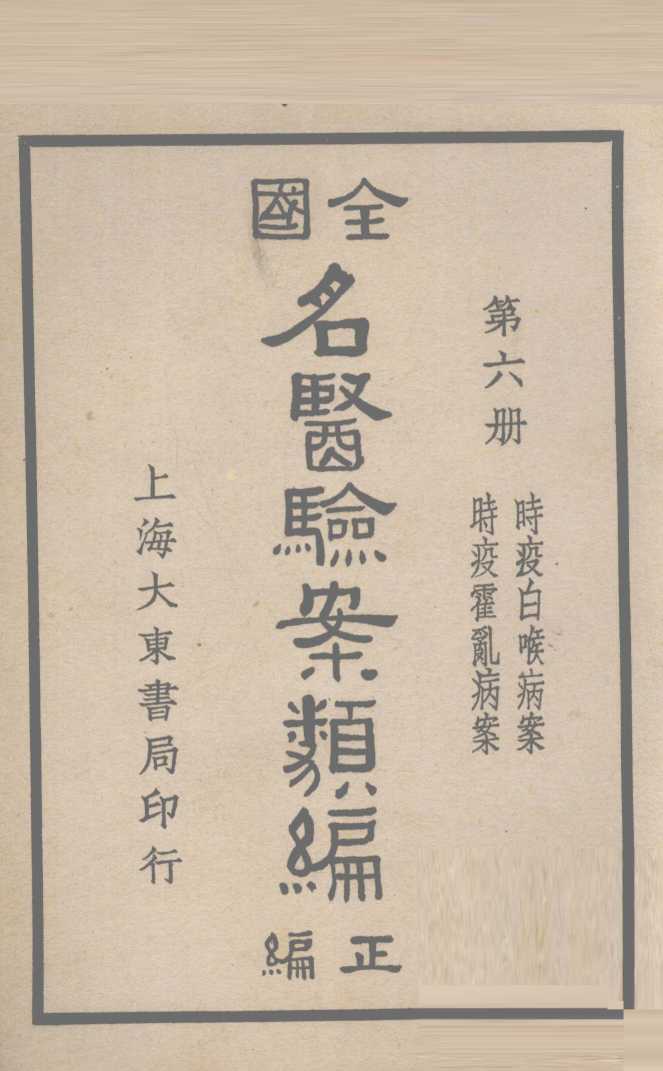 第六册
時疫白喉病案
時疫霍亂病案
全國
名醫驗案類編
正編
上海大東書局印行